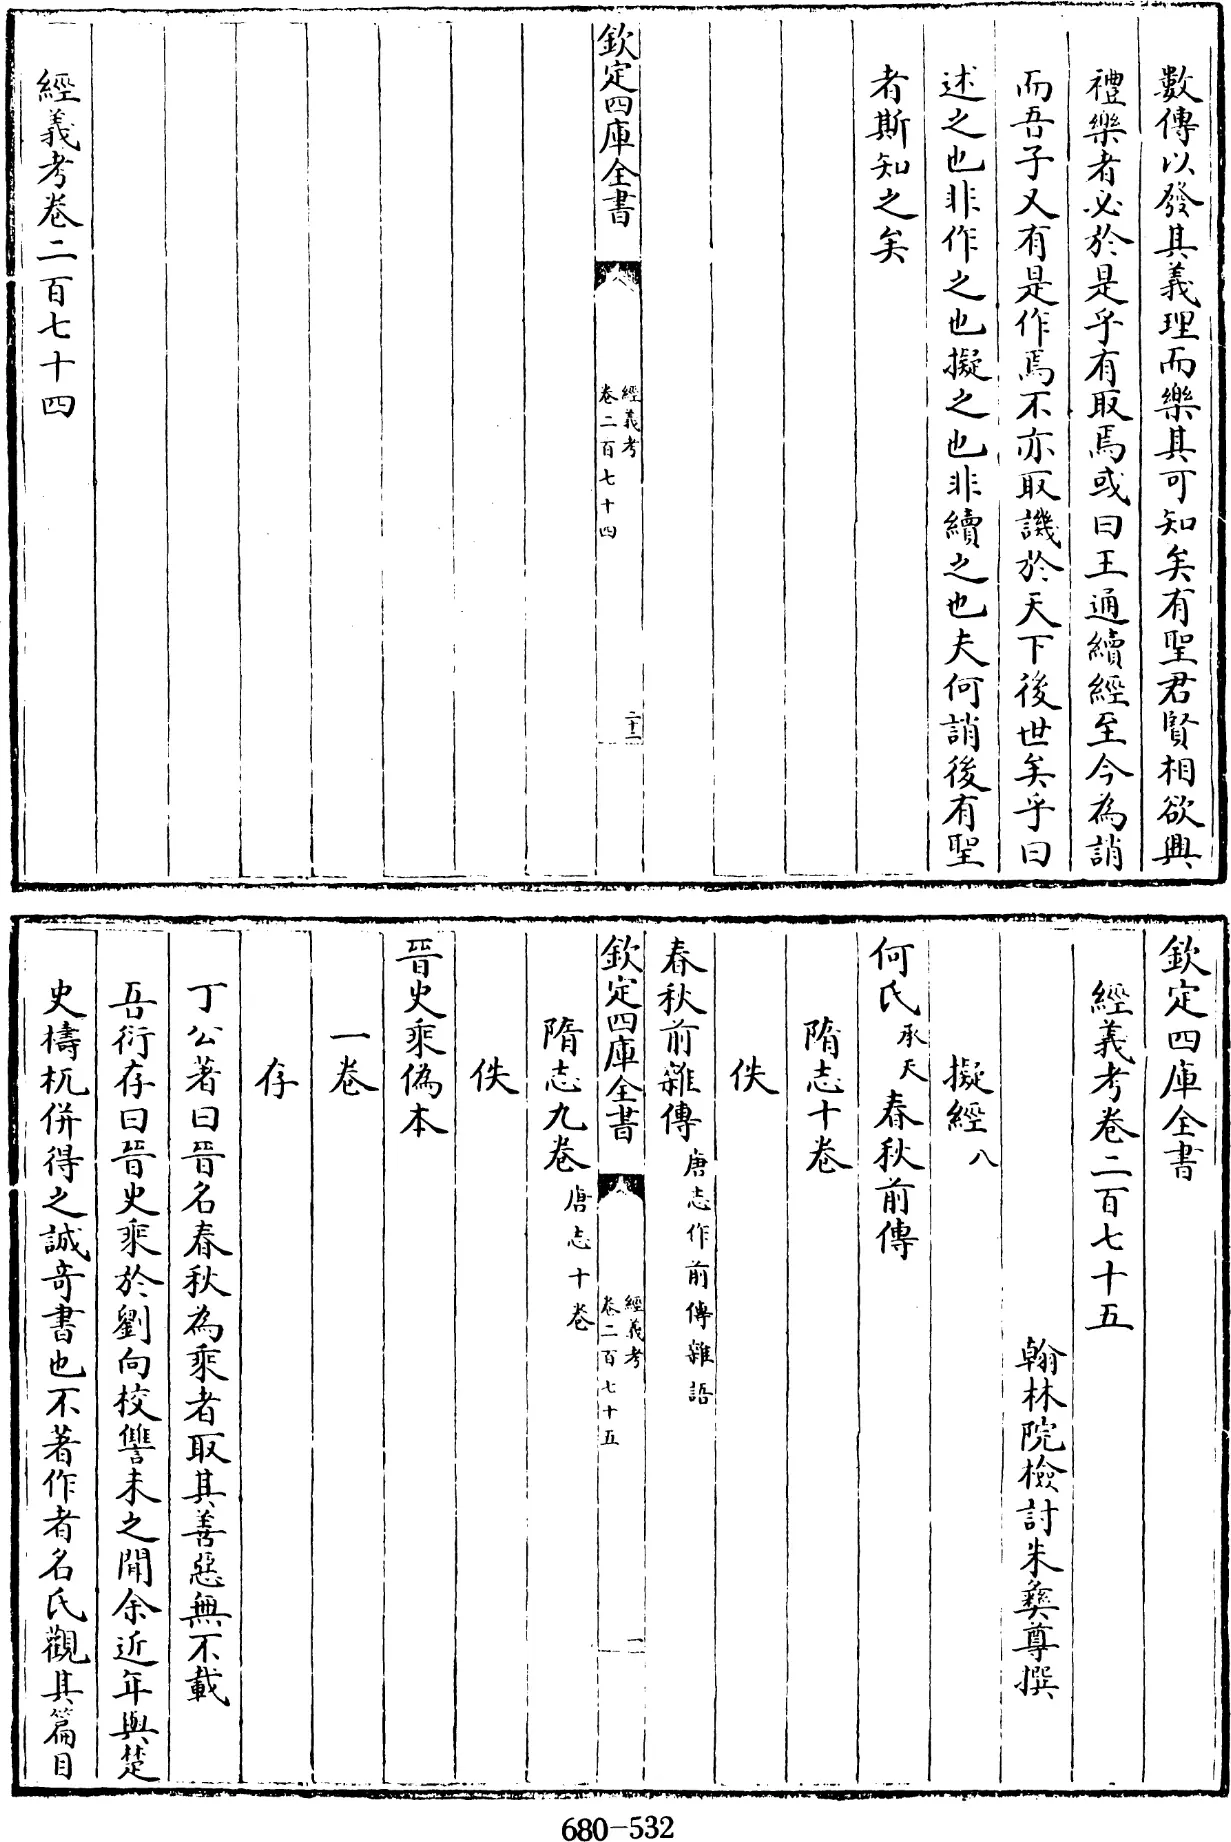 數傳以發其義理而樂其可知矣有聖君賢相欲興
禮樂者必於是乎有取焉或曰王通續經至今為誚
而吾子又有是作焉不亦取譏於天下後世矣乎曰
述之也非作之也擬之也非續之也夫何誚後有聖
者斯知之矣
欽定四庫全書
經義考
卷二百七十四
二十二
經義考卷二百七十四
欽定四庫全書
經義考卷二百七十五
翰林院檢討朱彝尊撰
擬經八
何氏承天春秋前傳
隋志十卷
佚
春秋前雜傳唐志作前傳雜語
欽定四庫全書
經義考
卷二百七十五
一
隋志九卷唐志十卷
佚
晉史乘偽本
一卷
存
丁公著曰晉名春秋為乘者取其善惡無不載
吾衍存曰晉史乘於劉向校讐未之聞余近年與楚
史檮杌併得之誠奇書也不著作者名氏觀其篇目
680-532